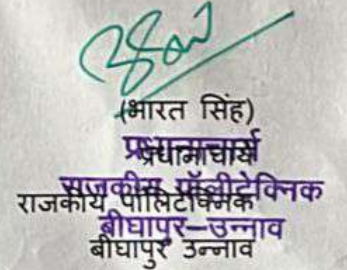 (भारत सिंह)
प्रधानाचार्य
प्रधानाचार्य
राजकीय पॉलीटेक्निक
राजकीय पॉलिटेक्निक
बीघापुर–उन्नाव
बीघापुर उन्नाव